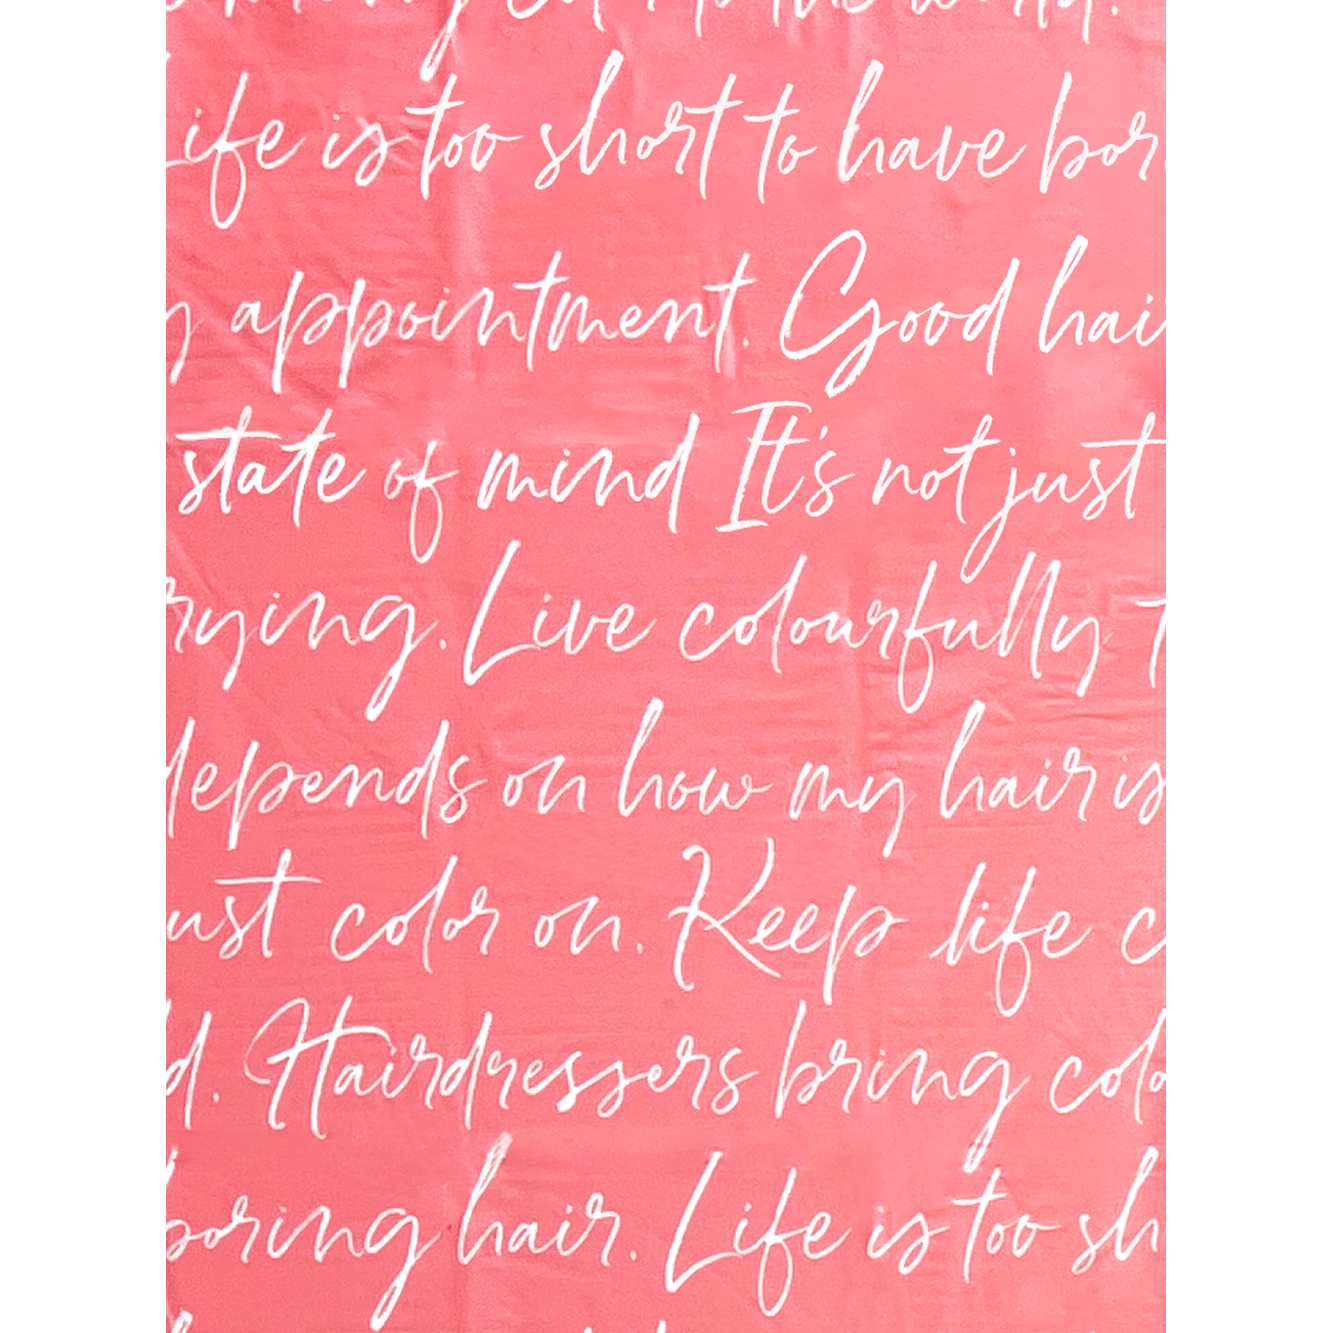 the world.
ife is too short to have bor
appointment. Good hai
state of mind It's not just
rying. Live colourfully
depends on how my hair is
ust color on. Keep life c
d. Hairdressers bring colo
boring hair. Life is too sh